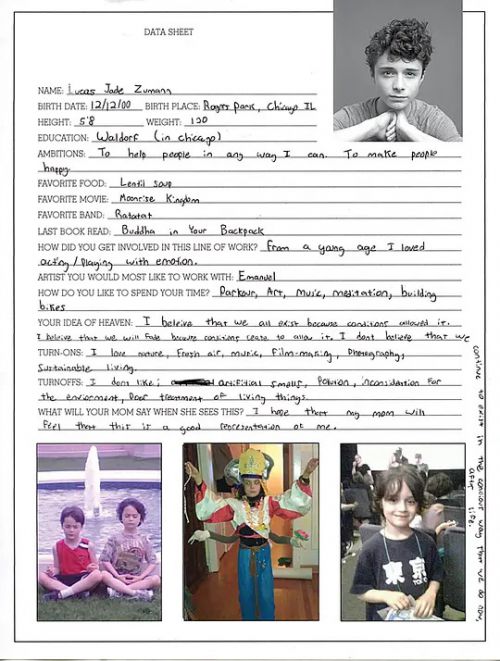 DATA SHEET
NAME: Lucas Jade Zumann
BIRTH DATE: 12/12/00 BIRTH PLACE: Rogers Park, Chicago IL
HEIGHT: 5'8 WEIGHT: 120
EDUCATION: Waldorf (in chicago)
AMBITIONS: To help people in any way I can. To make people
happy
FAVORITE FOOD: Lentil Soup
FAVORITE MOVIE: Moonrise Kingdom
FAVORITE BAND: Ratatat
LAST BOOK READ: Buddha in Your Backpack
HOW DID YOU GET INVOLVED IN THIS LINE OF WORK? From a young age I loved
acting/playing with emotion.
ARTIST YOU WOULD MOST LIKE TO WORK WITH: Emanuel
HOW DO YOU LIKE TO SPEND YOUR TIME? Parkour, Art, Music, meditation, building
bikes
YOUR IDEA OF HEAVEN: I beleive that we all exist because conditions allowed it.
I beleive that we will fade because conditions cease to allow it. I dont believe that we
continue to exist in the concious way that we do now,
after life.
TURN-ONS: I love nature, Fresh air, music, Film-making, Photography,
Sustainable living.
TURNOFFS: I dont like; artificial smells, Polution, inconsideration For
the enviorment, Poor treatment of living things.
WHAT WILL YOUR MOM SAY WHEN SHE SEES THIS? I hope that my mom will
feel that this is a good representation of me.
東京
TOKYO